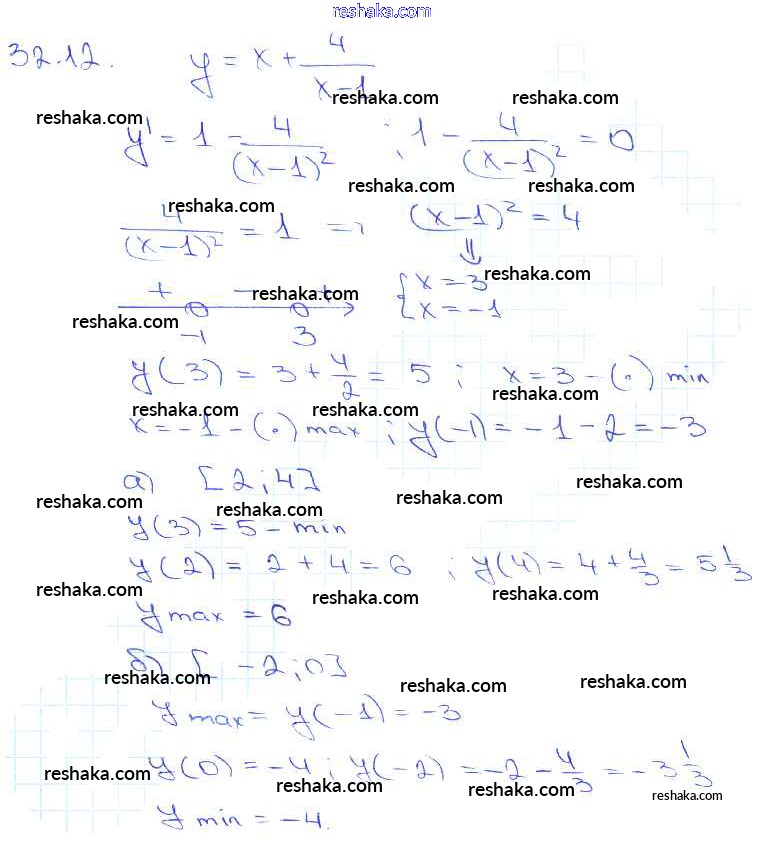 reshaka.com
32.12. y = x + 4/(x-1)
reshaka.com reshaka.com
reshaka.com
y' = 1 - 4/(x-1)² ; 1 - 4/(x-1)² = 0
reshaka.com reshaka.com
reshaka.com
4/(x-1)² = 1 => (x-1)² = 4
⇓
{ x = 3 reshaka.com
x = -1
+ - reshaka.com +
reshaka.com
-1 3
y(3) = 3 + 4/2 = 5 ; x = 3 - (·) min
reshaka.com reshaka.com reshaka.com
x = -1 - (·) max ; y(-1) = -1 - 2 = -3
а) [2;4] reshaka.com
reshaka.com reshaka.com reshaka.com
y(3) = 5 - min
y(2) = 2 + 4 = 6 ; y(4) = 4 + 4/3 = 5 1/3
reshaka.com reshaka.com reshaka.com
y max = 6
б) [-2;0]
reshaka.com reshaka.com reshaka.com
y max = y(-1) = -3
y(0) = -4 ; y(-2) = -2 - 4/3 = -3 1/3
reshaka.com reshaka.com reshaka.com reshaka.com
y min = -4.